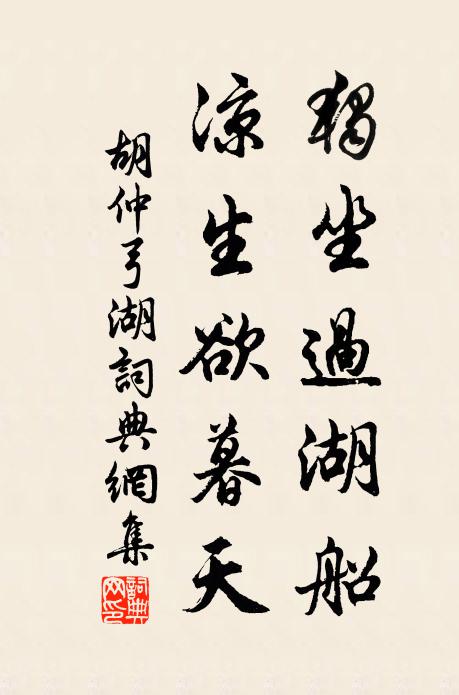 獨坐過湖船
涼生欲暮天
胡仲弓湖詞典網集
詞典網印